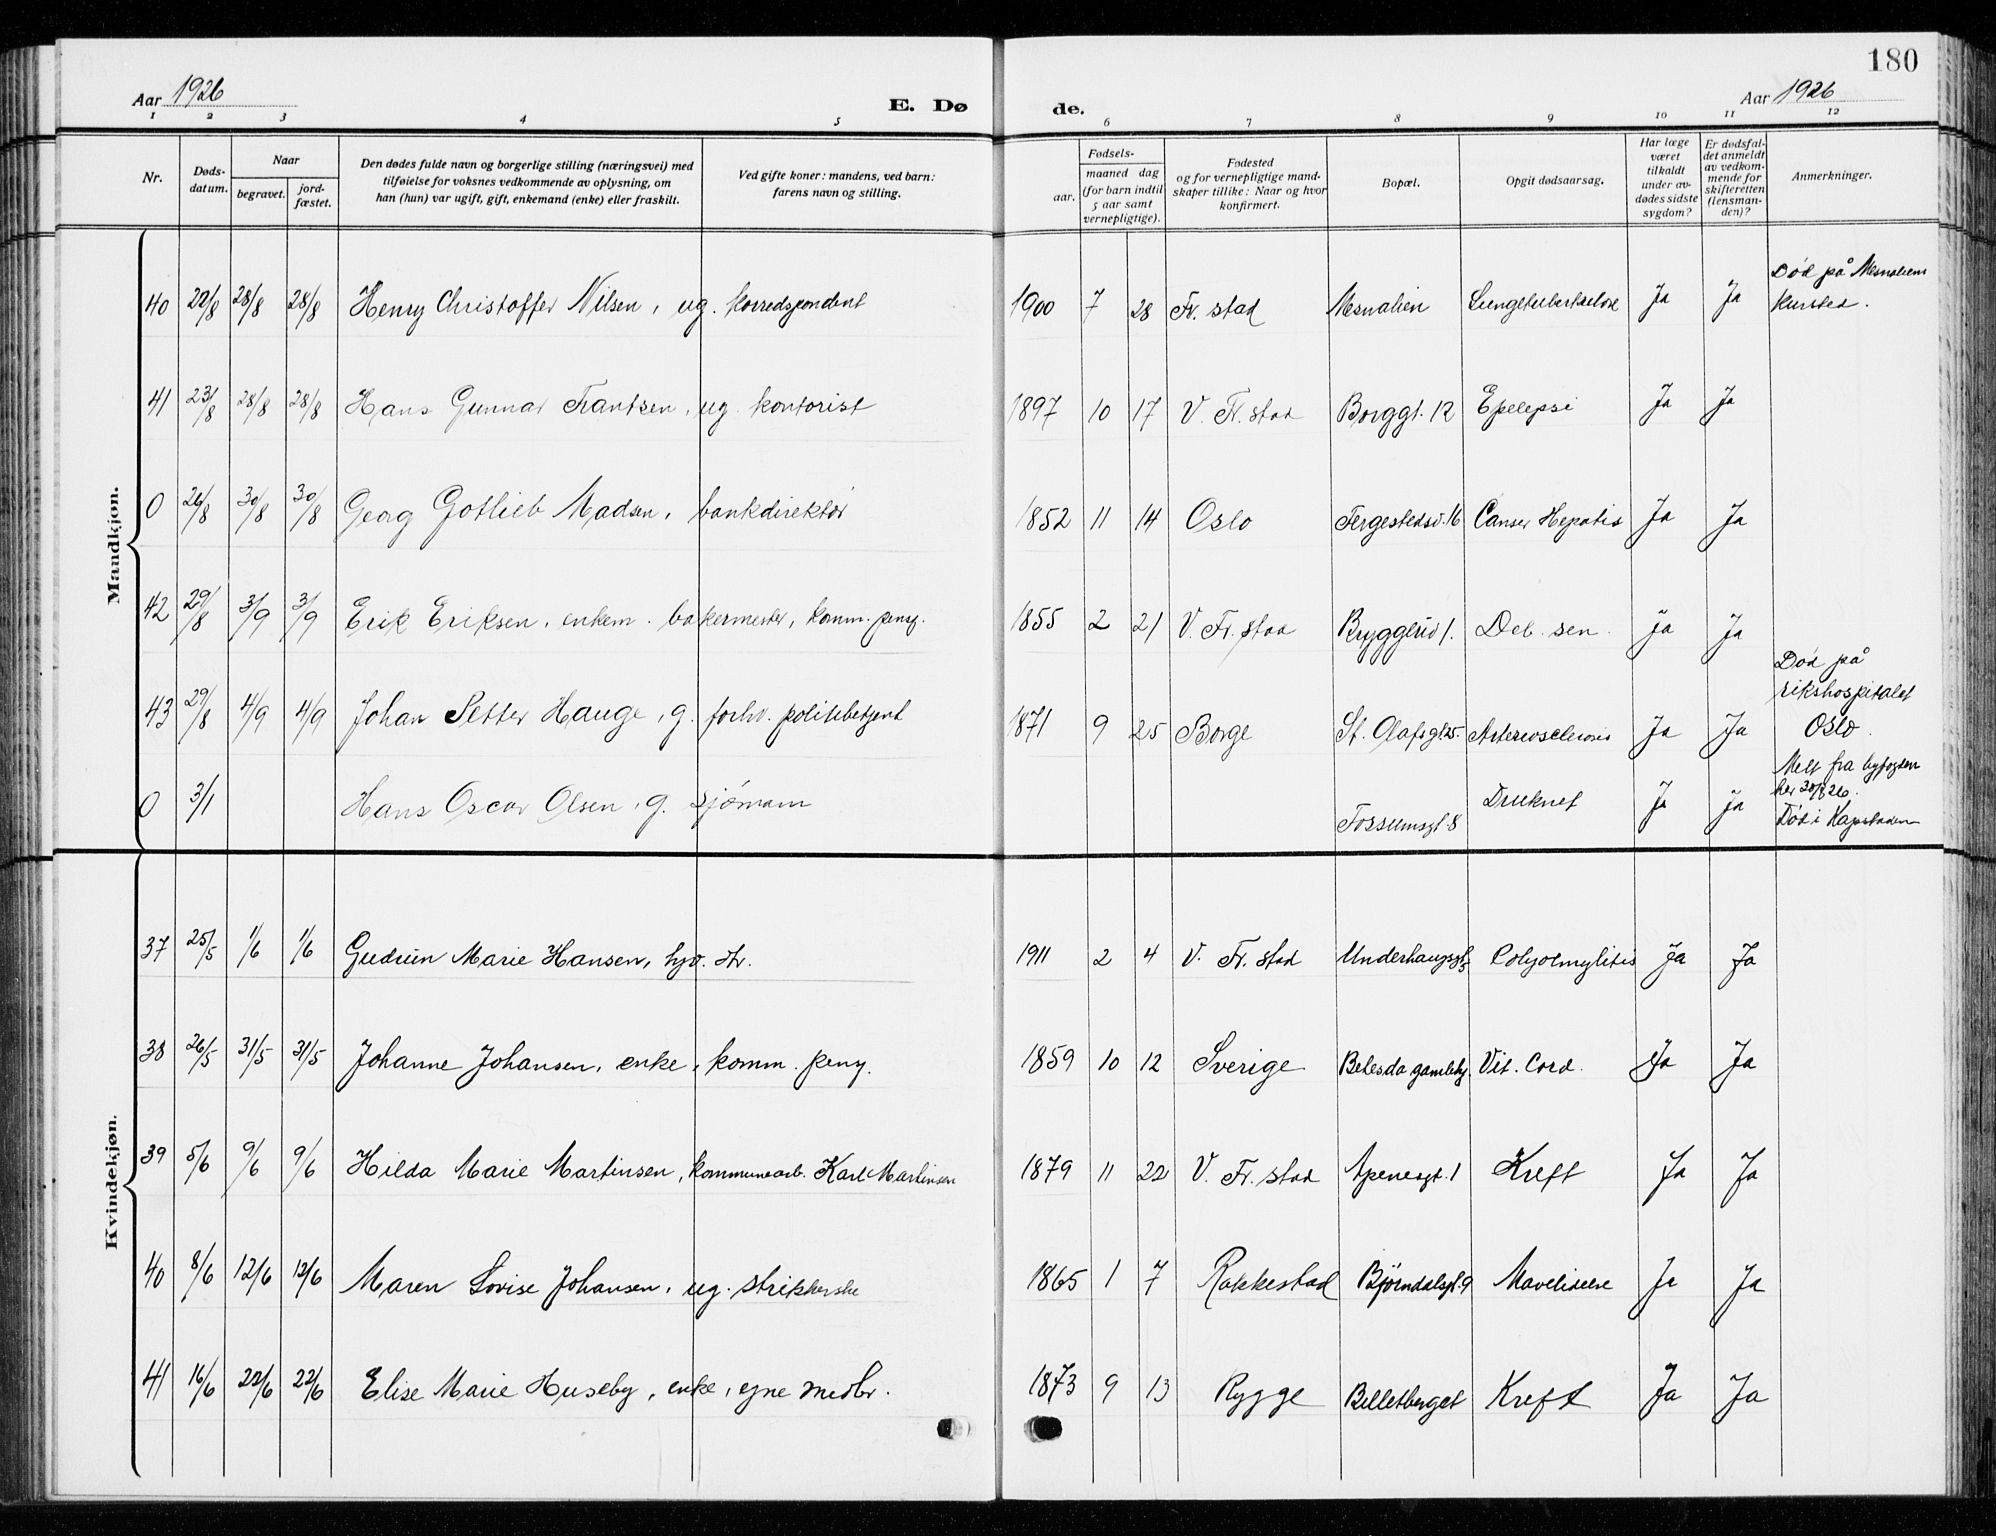 180
Aar 1926
E. Dø
de.
Aar 1926
1 2 3 4 5 6 7 8 9 10 11 12
Nr.
Døds-
datum.
Naar
begravet.
jord-
fæstet.
Den dødes fulde navn og borgerlige stilling (næringsvei) med
tilføielse for voksnes vedkommende av oplysning, om
han (hun) var ugift, gift, enkemand (enke) eller fraskilt.
Ved gifte koner: mandens, ved barn:
farens navn og stilling.
Fødsels-
aar.
maaned dag
(for barn indtil
5 aar samt
vernepligtige).
Fødested
og for vernepligtige mand-
skaper tillike: Naar og hvor
konfirmert.
Bopæl.
Opgit dødsaarsag.
Har læge
været
tilkaldt
under av-
dødes sidste
sygdom?
Er dødsfal-
det anmeldt
av vedkom-
mende for
skifteretten
(lensman-
den)?
Anmerkninger.
Mandkjøn.
40 22/8 28/8 28/8 Henry Christoffer Nilsen, ug. korrespondent 1900 7 28 Fr. stad Mesnalien Lungetuberkulose Ja Ja Död på Mesnaliens
kursted.
41 23/8 28/8 28/8 Hans Gunnar Frantsen, ug. kontorist 1897 10 17 V. Fr. stad Borggt. 12 Epelepsi Ja Ja
0 26/8 30/8 30/8 Georg Gotlieb Madsen, bankdirektör 1852 11 14 Oslo Fergestedsv. 16 Canser Hepatis Ja Ja
42 29/8 3/9 3/9 Erik Eriksen, enkem. bakermester, komm. peng. 1855 2 21 V. Fr. stad 1. Deb. sen. ja Ja
43 29/8 4/9 4/9 Johan Petter Hauge, g. forhv. politibetjent 1871 9 25 Borge St. Olafsgt. 25. Arteriosclerosis Ja Ja Död på
rikshospitalet
Oslo.
0 3/1 Hans Oscar Olsen, g. sjömann Fossumsgt 8 Druknet Ja ja Melt fra byfogden
her 30/8 26.
Död i Kapstaden
Kvindekjøn.
37 25/5 1/6 1/6 Gudrun Marie Hansen, hjv. dtr. 1911 2 4 V. Fr. stad Underhaugsgt 5 Polyomylitis Ja Ja
38 26/5 31/5 31/5 Johanne Johansen, enke, komm. peng. 1859 10 12 Sverige Betesda gamlehj. Vit. Cord. Ja Ja
39 5/6 9/6 9/6 Hilda Marie Martinsen, kommunearb. Karl Martinsen 1879 11 22 V. Fr. stad Apenesgt. 1 Kreft Ja Ja
40 8/6 12/6 12/6 Maren Lovise Johansen, ug. strikkerske 1865 1 7 Rakkestad Björndalsgt. 9 Ja Ja
41 16/6 22/6 22/6 Elise Marie Huseby, enke, egne midler. 1873 9 13 Rygge Billetberget Kreft Ja Ja